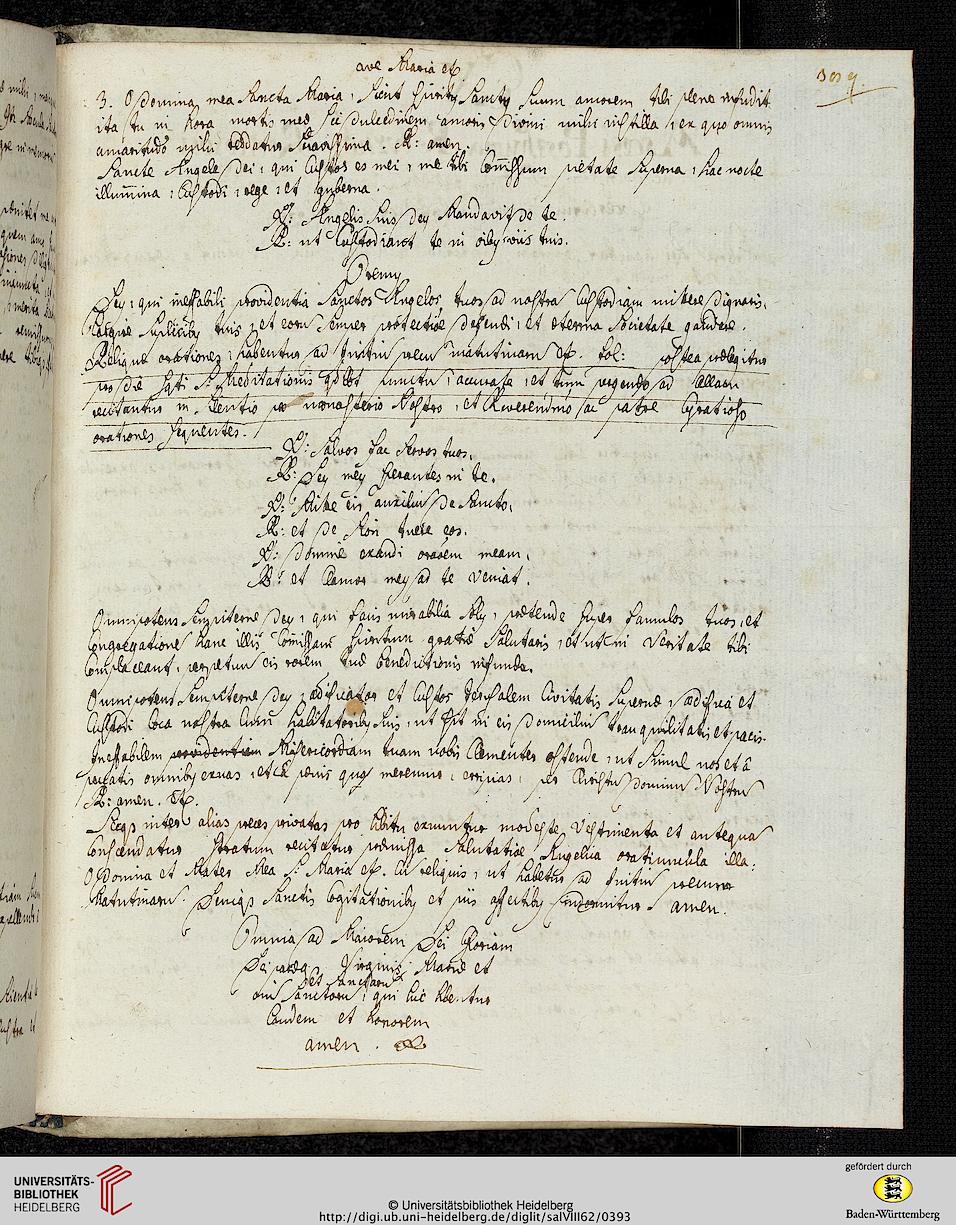 ave Maria etc
3. O Domina mea Sancta Maria, Sicut Spiritus Sanctus Suum amorem tibi plene infudit
ita, tu in hora mortis meae Sui dulcedinem amoris Divini mihi instilla, ex quo omnis
amaritudo mihi reddatur Suavissima. R: amen.
Sancte Angele Dei, qui Custos es mei, me tibi Comissum pietate Superna, hac nocte
illumina, Custodi, rege, et guberna.
V: Angelis Suis Deus Mandavit De te.
R: ut Custodiant te in oibus viis tuis.
Oremus
Deus, qui ineffabili providentia Sanctos Angelos tuos ad nostra Custodiam mittere Dignaris,
largire Suplicibus tuis, et eoru Semper protectioe Defendi, et aeterna Societate gaudere.
Reliquae orationes, habentur ad Initiu precu matutinaru etc. postea praelegitur
pro die Sqti S. Meditationis puncta, accurate, et tum pergendo ad Cellam
recitantur in Silentio pro monasterio Nostro, et Reverendmo ac patre Gratioso
orationes Sequentes.
V: Salvos fac Servos tuos.
R: Deus meus Sperantes in te.
V: Mitte eis auxiliu De Sancto.
R: et De Sion tuere eos.
V: Domine exaudi oraoem meam.
R: et Clamor meus ad te Veniat.
Omnipotens Sempiterne Deus, qui facis mirabilia Solus, praetende Super famulos tuos, et
Congregatione hanc illis Comissam Spiritum gratiae Salutaris, et ut in Veritate tibi
Complaceant, perpetuu eis rorem tuae benedictionis infunde.
Omnipotens Sempiterne Deus, aedificator et Custos Jerusalem Civitatis Supernae, aedifica et
Custodi loca nostra Cum habitatoribus Suis, ut Sit in eis Domiciliu tranquilitatis et pacis.
Ineffabilem providentiam Misericordiam tuam nobis Clementer ostende, ut Simul nos et a
peccatis omnibus exuas, et a poenis quas meremur, eripias, per Christu Dominu Nostru
R: amen. Etc.
inter alias preces privatas pro libitu exuuntur modeste Vestimenta et antequa
Conscendatur Stratum recitatur praemissa Salutatioe Angelica oratiuncula illa:
O Domina et Mater Mea S. Maria etc. Cu reliquis, ut habetur ad Initiu precum
Matutinaru. Deniqs Sanctis Cogitationibus et piis affectibus indormitur amen.
Omnia ad Maiorem Dei Gloriam
Deiparaeq. Virginis Mariae et
et Sanctaru
oiu Sanctoru, qui hic
laudem et honorem
amen.
UNIVERSITÄTS-
BIBLIOTHEK
HEIDELBERG
© Universitätsbibliothek Heidelberg
http://digi.ub.uni-heidelberg.de/diglit/salVIII62/0393
gefördert durch
Baden-Württemberg